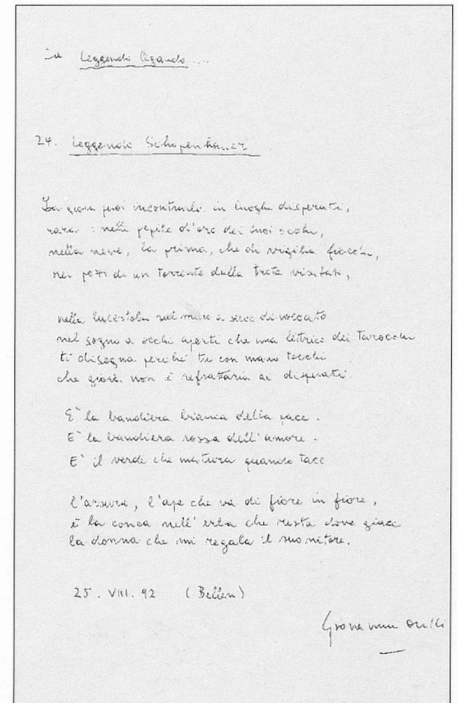 da Leggendo ...
24. Leggendo Schopenhauer
La gioia puoi incontrarla in luoghi disperati,
rara: nelle pepite d'oro dei suoi occhi,
nella neve, la prima, che di vigilia fiocchi,
nei pozzi di un torrente dalla trota visitati,
nella lucertola sul muro a secco
nel sogno a occhi aperti che una lettrice dei Tarocchi
ti disegna perché tu con mano tocchi
che gioia non è refrattaria ai disperati
E' la bandiera bianca della pace.
E' la bandiera rossa dell'amore.
E' il verde che matura quando tace
l'arsura, l'ape che va di fiore in fiore,
è la conca nell'erba che resta dove giace
la donna che mi regala il suo nitore.
25. VIII. 92 ( )
Giovanni